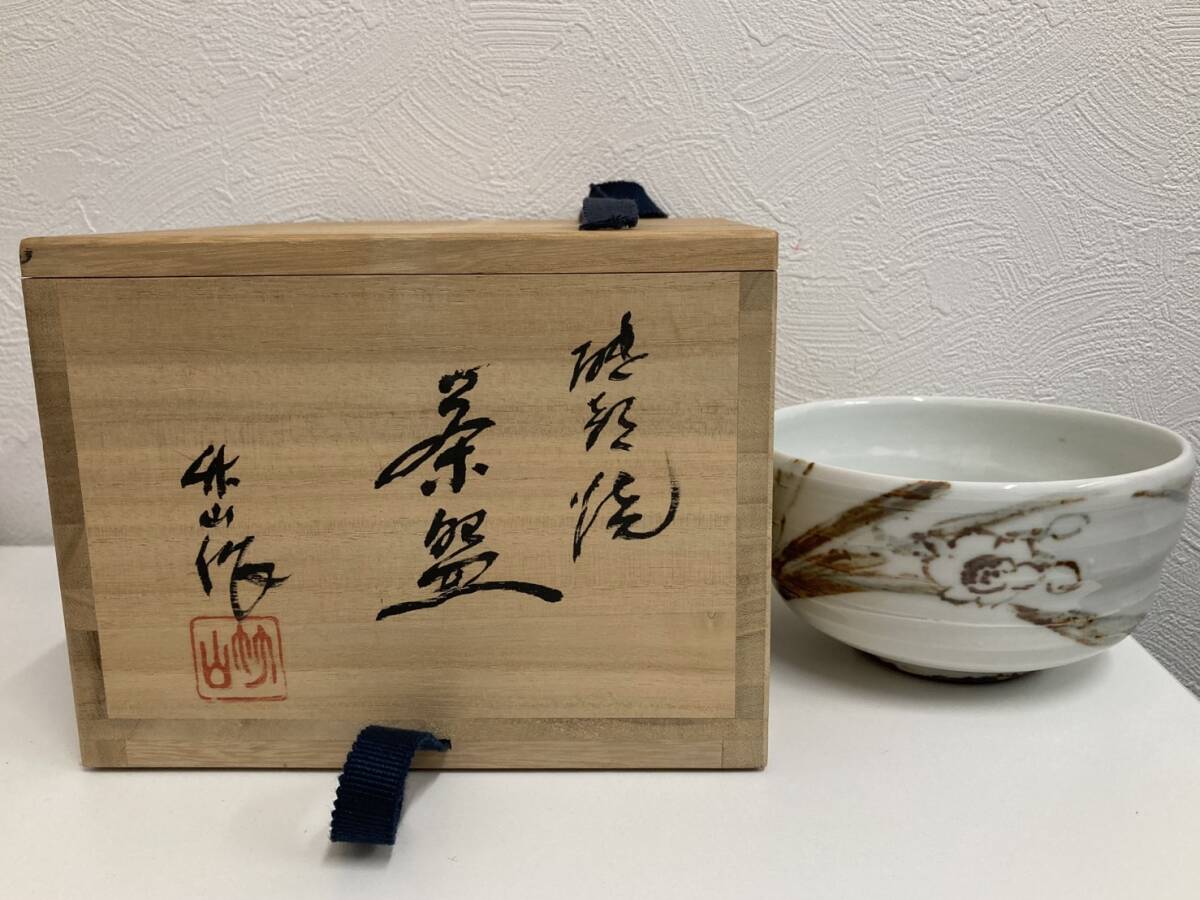 砥部焼
茶盌
竹山作
竹山